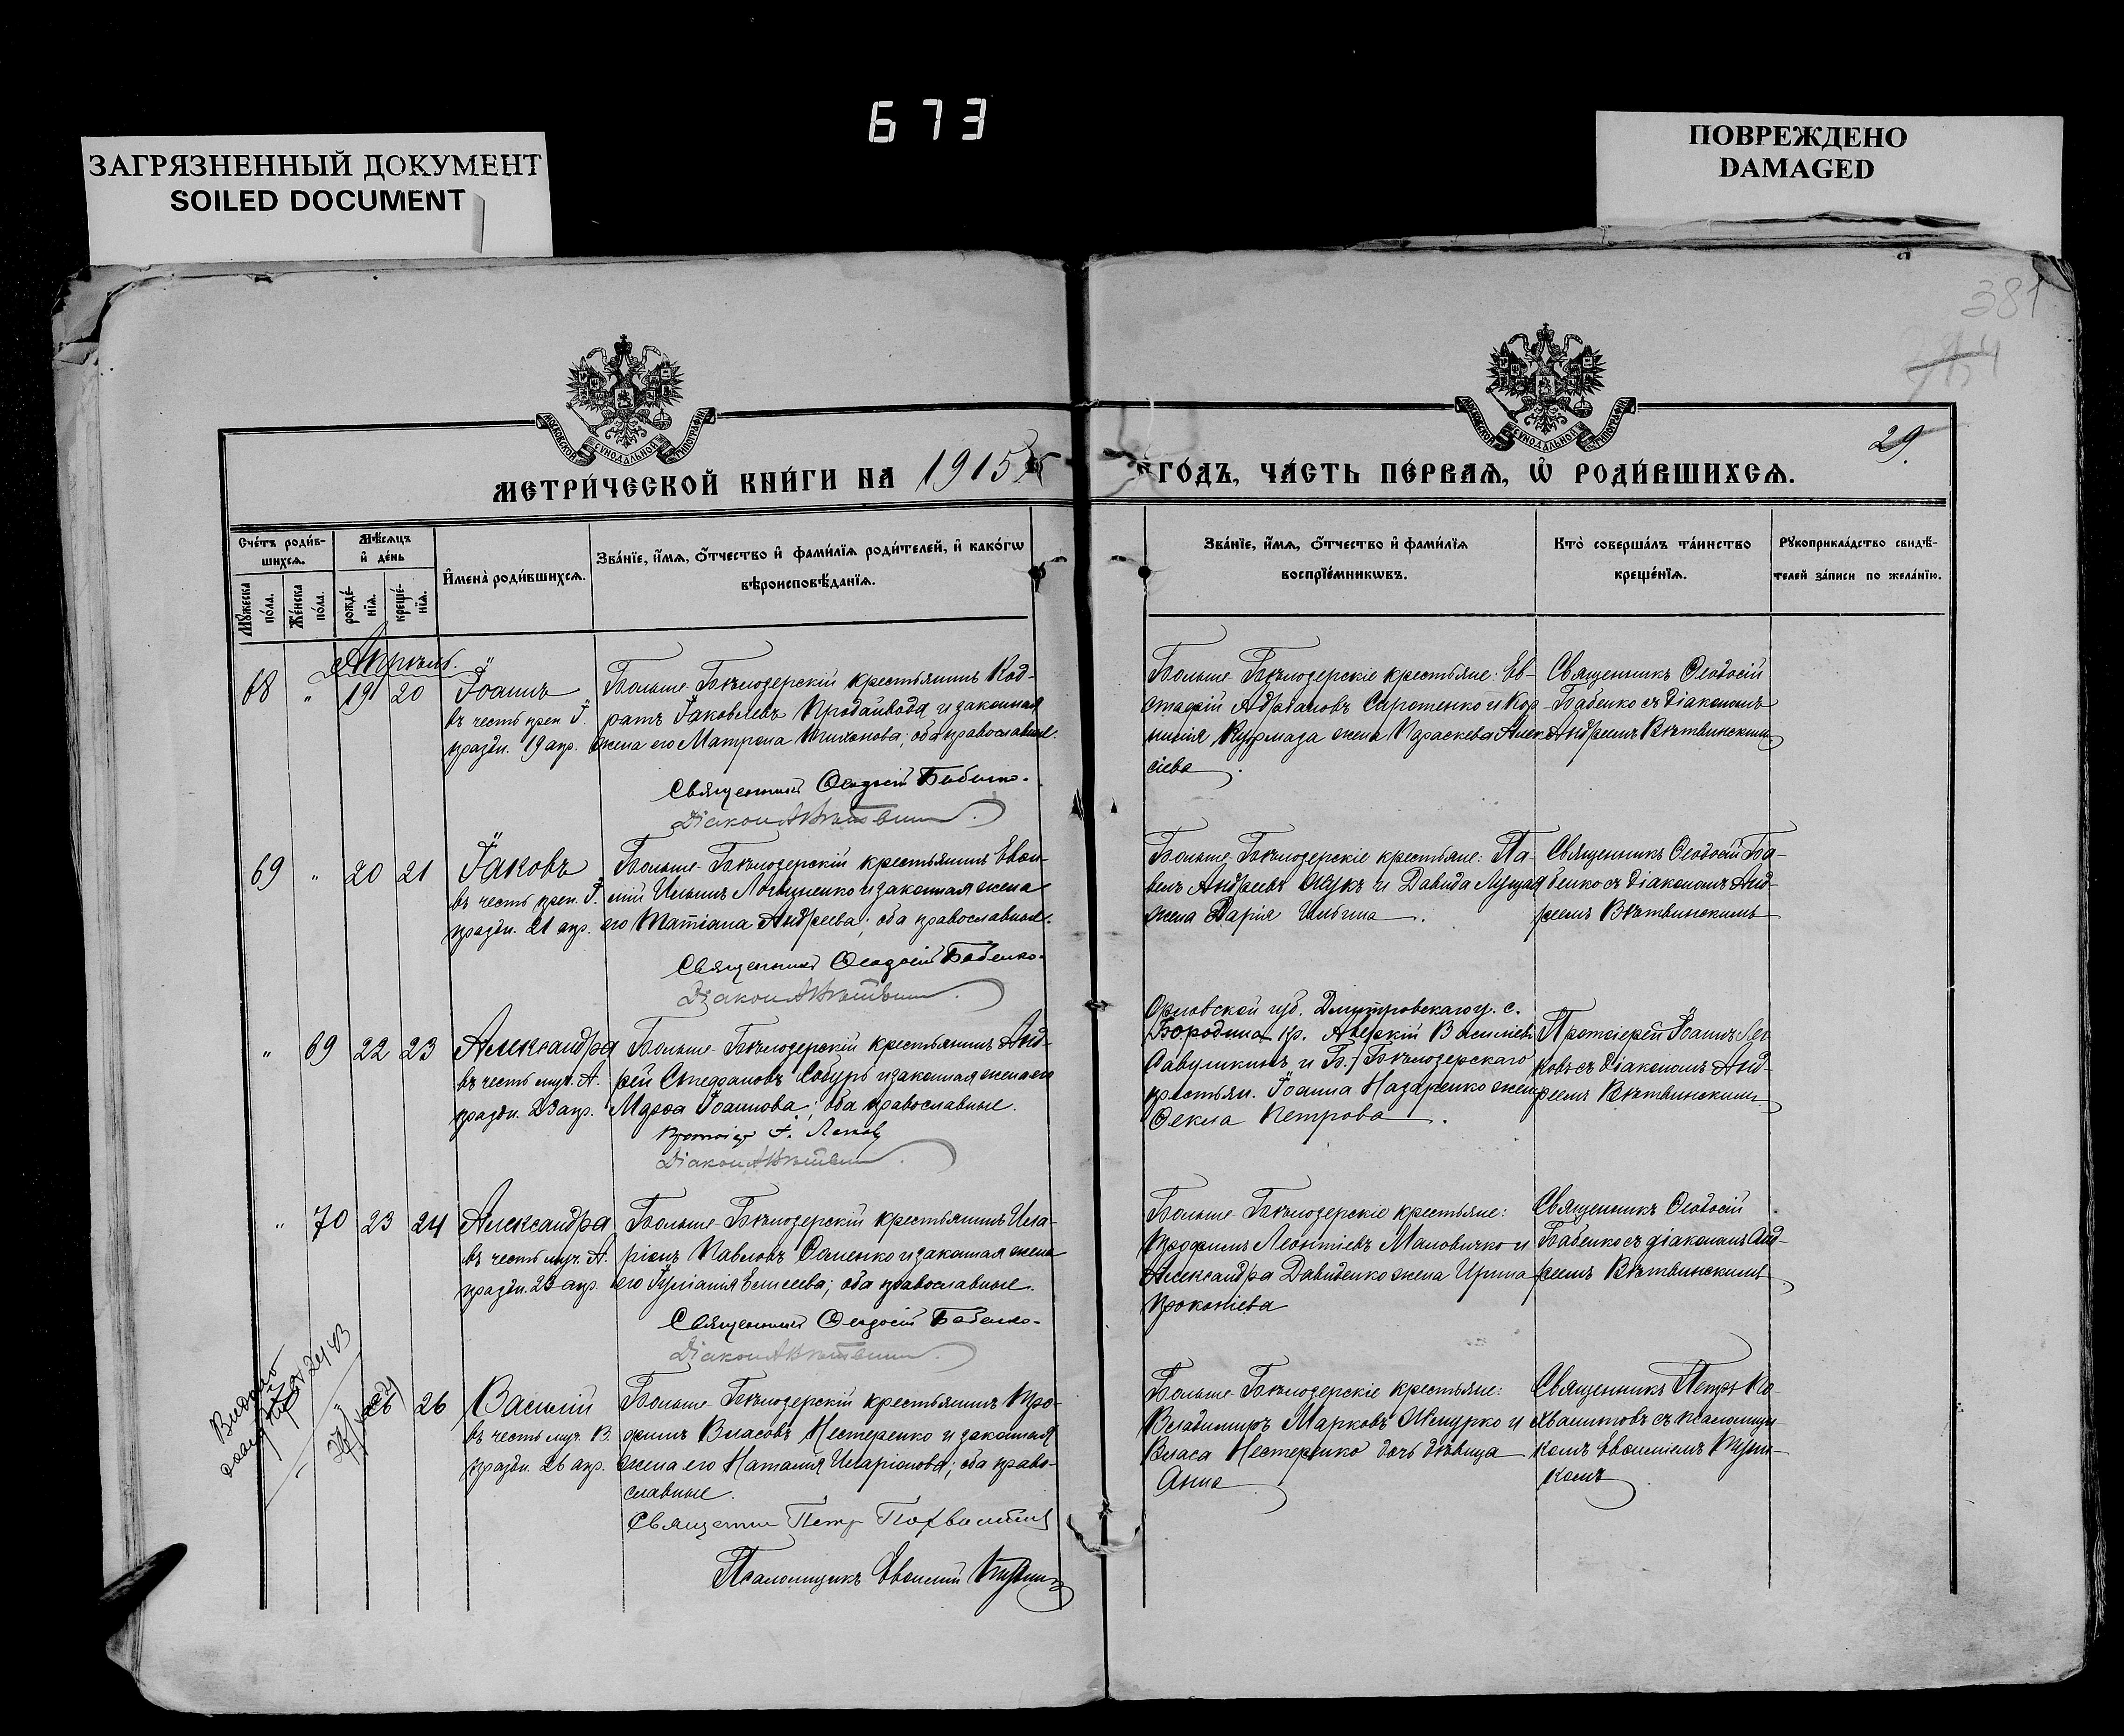 673
ЗАГРЯЗНЕННЫЙ ДОКУМЕНТ
SOILED DOCUMENT
ПОВРЕЖДЕНО
DAMAGED
381
29.
МОСКОВСКОЙ СѴНОДАЛЬНОЙ ТИПОГРАФІИ
МОСКОВСКОЙ СѴНОДАЛЬНОЙ ТИПОГРАФІИ
МЕТРИ́ЧЕСКОЙ КНИ́ГИ НА 1915
ГО́ДЪ, ЧА́СТЬ ПЕ́РВАѦ, Ѡ РОДИ́ВШИХСѦ.
Сче́тъ роди́в-
шихсѧ.
Мꙋ́жеска
по́ла.
Же́нска
по́ла.
Мѣ́сѧцъ
и҆ де́нь
рожде́-
нїѧ.
креще́-
нїѧ.
И҆мена̀ роди́вшихсѧ.
Зва́нїе, и҆́мѧ, ѻ҆́тчество и҆ фами́лїѧ роди́телей, и҆ како́гѡ
вѣроисповѣ́данїѧ.
Зва́нїе, и҆́мѧ, ѻ҆́тчество и҆ фами́лїѧ
воспрїе́мникѡвъ.
Кто̀ соверша́лъ та́инство
креще́нїѧ.
Рꙋкоприкла́дство свидѣ́-
телей за́писи по жела́нїю.
Апрѣль.
68 " 19 20 Іоаннъ
въ честь преп. І.
праздн. 19 апр.
Больше-Бѣлозерскій крестьянинъ Код-
ратъ Іаковлевъ Продайвода и законная
жена его Матрона Тихонова; оба православные.
Священникъ Ѳеодосій Бабенко.
Діаконъ А Вѣтвин
Больше-Бѣлозерскіе крестьяне: Ев-
стафій Адріановъ Сиротенко и Кор-
нилія Курмаза жена Параскева Алек-
сіева.
Священникъ Ѳеодосій
Бабенко съ діакономъ
Андреемъ Вѣтвинскимъ
69 " 20 21 Іаковъ
въ честь преп. І.
праздн. 21 апр.
Больше-Бѣлозерскій крестьянинъ Евѳи-
мій Ильинъ Логвиненко и законная жена
его Татіана Андреева; оба православные.
Священникъ Ѳеодосій Бабенко.
Діаконъ А Вѣтвин
Больше-Бѣлозерскіе крестьяне: Па-
велъ Андреевъ Жукъ и Давида Лущая
жена Дарія Ильина.
Священникъ Ѳеодосій Ба-
бенко съ діакономъ Анд-
реемъ Вѣтвинскимъ
" 69 22 23 Александра
въ честь муч. А.
праздн. 23 апр.
Больше-Бѣлозерскій крестьянинъ Анд-
рей Стефановъ Собуръ и законная жена его
Марѳа Іоаннова; оба православные.
Протоіер. І. Легковъ
Діаконъ А Вѣтвин
Орловской губ. Дмитровскаго у. с.
Бородина кр. Аверкій Василіевъ
Савушкинъ и Б.-Бѣлозерскаго
крестьян. Іоанна Назаренко жена
Ѳекла Петрова.
Протоіерей Іоаннъ Лег-
ковъ съ діакономъ Анд-
реемъ Вѣтвинскимъ
" 70 23 24 Александра
въ честь муч. А.
праздн. 23 апр.
Больше-Бѣлозерскій крестьянинъ Ила-
ріонъ Павловъ Ѳоменко и законная жена
его Іуліанія Елисеева; оба православные.
Священникъ Ѳеодосій Бабенко.
Діаконъ А Вѣтвин
Больше-Бѣлозерскіе крестьяне:
Трофимъ Леонтіевъ Маловичко и
Александра Давиденко жена Ирина
Прокопіева
Священникъ Ѳеодосій
Бабенко съ діакономъ Анд-
реемъ Вѣтвинскимъ
Видано
26 Василій
въ честь муч. В.
праздн. 26 апр.
Больше-Бѣлозерскій крестьянинъ Тро-
фимъ Власовъ Нестеренко и законная
жена его Наталія Иларіонова; оба право-
славные.
Священникъ Петръ Похвалитовъ
Псаломщикъ Евѳимій
Больше-Бѣлозерскіе крестьяне:
Владимиръ Марковъ Шкурко и
Власа Нестеренко дочь дѣвица
Анна
Священникъ Петръ По-
хвалитовъ съ псаломщи-
комъ Евѳиміемъ